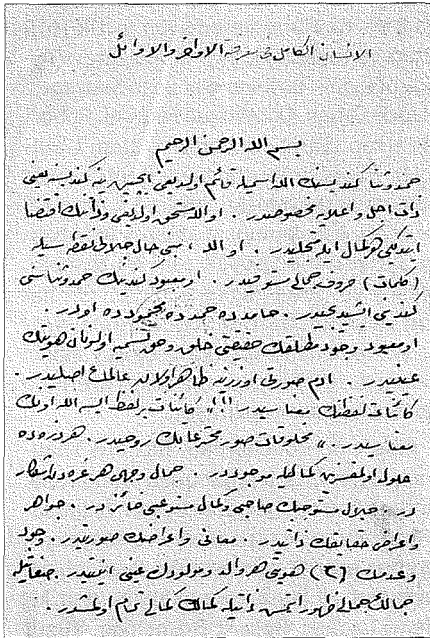 الانسان الكامل فى معرفة الاواخر والاوائل
بسم الله الرحمن الرحيم
حمد وثنا كنديسنك الله اسميله قائم اولديغى ايچين ينه كنديسينه يعنى
ذات اجل واعلايه مخصوصدر . او الله مستحق اولديغى وذاتنك اقتضا
ايتديكى هر كمال ايله متجليدر . او الله ، بنى جمال جلالى نقطه سيله
(كلمات) حروف جمالى مستوفيدر . او معبود كندينك حمد وثناسنى
كندينى ايشيديجيدر . حامد ده حمد ده محمود ده اودر .
او معبود وجود مطلقك حقيقتى خلق وحق تسميه اولونان هويتك
عينيدر . آدم صورتى اوزرنه ظاهر اولان عالمك اصليدر .
كائنات لفظنك معناسيدر (!؟) كائنات بر لفظ ايسه الله اونك
معناسيدر . مخلوقات صور مخترعاتك روحيدر . هر ذره ده
حلول اولمقسزين كماليله موجوددر . جمال وجهى هر غره ده آشكار
در . جلال مستوجبك صاحبى وكمال مستوعبى حائزدر . جواهر
واعراض حقايقك ذاتيدر . معانى واعراضك صورتيدر . وجود
وعدمك (٢) هويتى هر والد ومولودك عينى
جمالك جمالى ظهور ايتمش ذاتيله كمالك كمالى تمام اولمشدر .